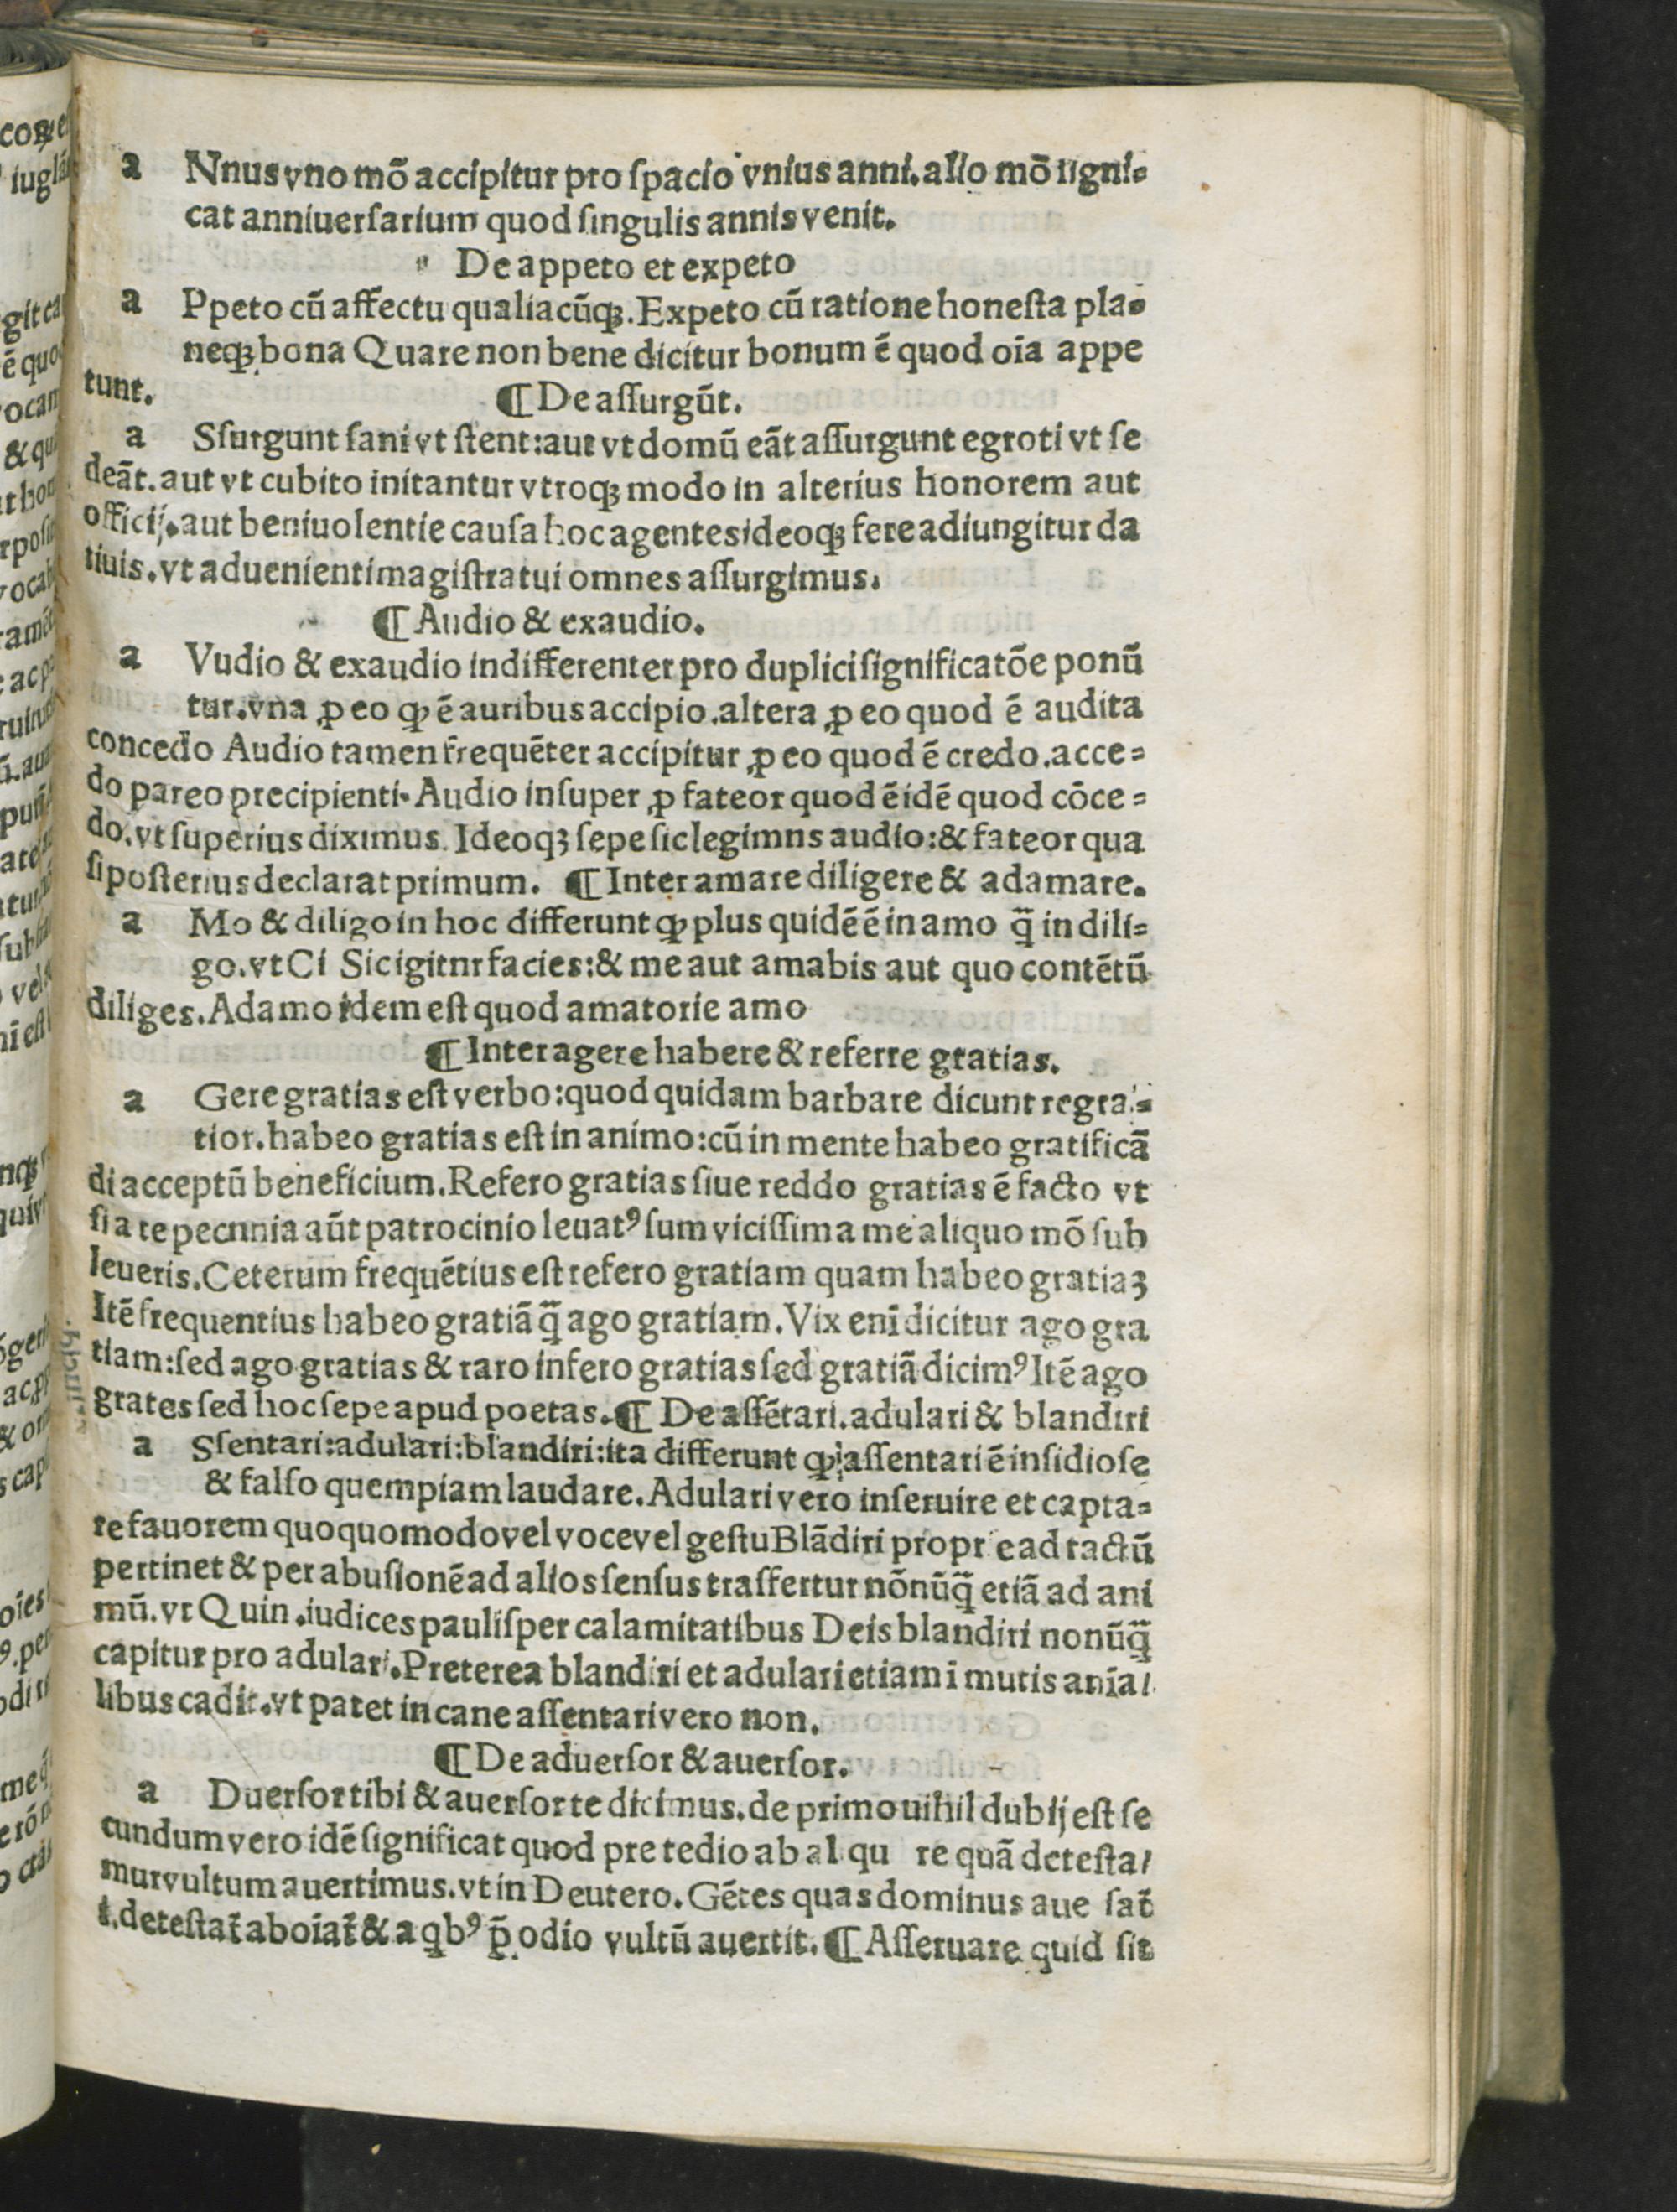 a Nnus vno mõ accipitur pro ſpacio vnius anni. alio mõ ſigni-
cat anniuerſarium quod ſingulis annis venit.
De appeto et expeto
a Ppeto cũ affectu qualiacũqꝫ. Expeto cũ ratione honeſta pla-
neqꝫ bona Quare non bene dicitur bonum ẽ quod oĩa appe
tunt. ¶ De aſſurgũt.
a Sſurgunt ſani vt ſtent: aut vt domũ eãt aſſurgunt egroti vt ſe
deãt. aut vt cubito initantur vtroqꝫ modo in alterius honorem aut
officij. aut beniuolentie cauſa hoc agentes ideoqꝫ fere adiungitur da
tiuis. vt aduenienti magiſtratui omnes aſſurgimus.
¶ Audio & exaudio.
a Vudio & exaudio indifferenter pro duplici ſignificatõe ponũ
tur. vna ꝓ eo ꝙ ẽ auribus accipio. altera ꝓ eo quod ẽ audita
concedo Audio tamen frequẽter accipitur ꝓ eo quod ẽ credo. acce=
do pareo precipienti. Audio inſuper ꝓ fateor quod ẽ idẽ quod cõce=
do. vt ſuperius diximus. Ideoqꝫ ſepe ſic legimns audio: & fateor qua
ſi poſterius declarat primum. ¶ Inter amare diligere & adamare.
a Mo & diligo in hoc differunt ꝙ plus quidẽ ẽ in amo q̃ in dili=
go. vt Ci Sic igitnr facies: & me aut amabis aut quo contẽtũ
diliges. Adamo idem eſt quod amatorie amo
¶ Inter agere habere & referre gratias.
a Gere gratias eſt verbo: quod quidam barbare dicunt regra-
tior. habeo gratias eſt in animo: cũ in mente habeo gratificã
di acceptũ beneficium. Refero gratias ſiue reddo gratias ẽ facto vt
ſi a te pecnnia aũt patrocinio leuatꝰ ſum viciſſim a me aliquo mõ ſub
leueris. Ceterum frequẽtius eſt refero gratiam quam habeo gratiaꝫ
Itẽ frequentius habeo gratiã q̃ ago gratiam. Vix enĩ dicitur ago gra
tiam: ſed ago gratias & raro infero gratias ſed gratiã dicimꝰ Itẽ ago
grates ſed hoc ſepe apud poetas. ¶ De aſſẽtari. adulari & blandiri
a Sſentari: adulari: blandiri: ita differunt ꝙ aſſentari ẽ inſidioſe
& falſo quempiam laudare. Adulari vero inſeruire et capta=
re fauorem quoquomodo vel voce vel geſtu Blãdiri propr e ad tactũ
pertinet & per abuſionẽ ad alios ſenſus traſfertur nõnũq̃ etiã ad ani
mũ. vt Quin. iudices pauliſper calamitatibus Deis blandiri nonũq̃
capitur pro adulari. Preterea blandiri et adulari etiam ĩ mutis anĩa/
libus cadit. vt patet in cane aſſentari vero non.
¶ De aduerſor & auerſor.
a Duerſor tibi & auerſor te dicimus. de primo uihil dubij eſt ſe
cundum vero idẽ ſignificat quod pre tedio ab al qu re quã deteſta/
mur vultum auertimus. vt in Deutero. Gẽtes quas dominus aue ſat̃
i. deteſtat̃ aboĩat̃ & a qbꝰ p̃ odio vultũ auertit. ¶ Aſſeruare quid ſit